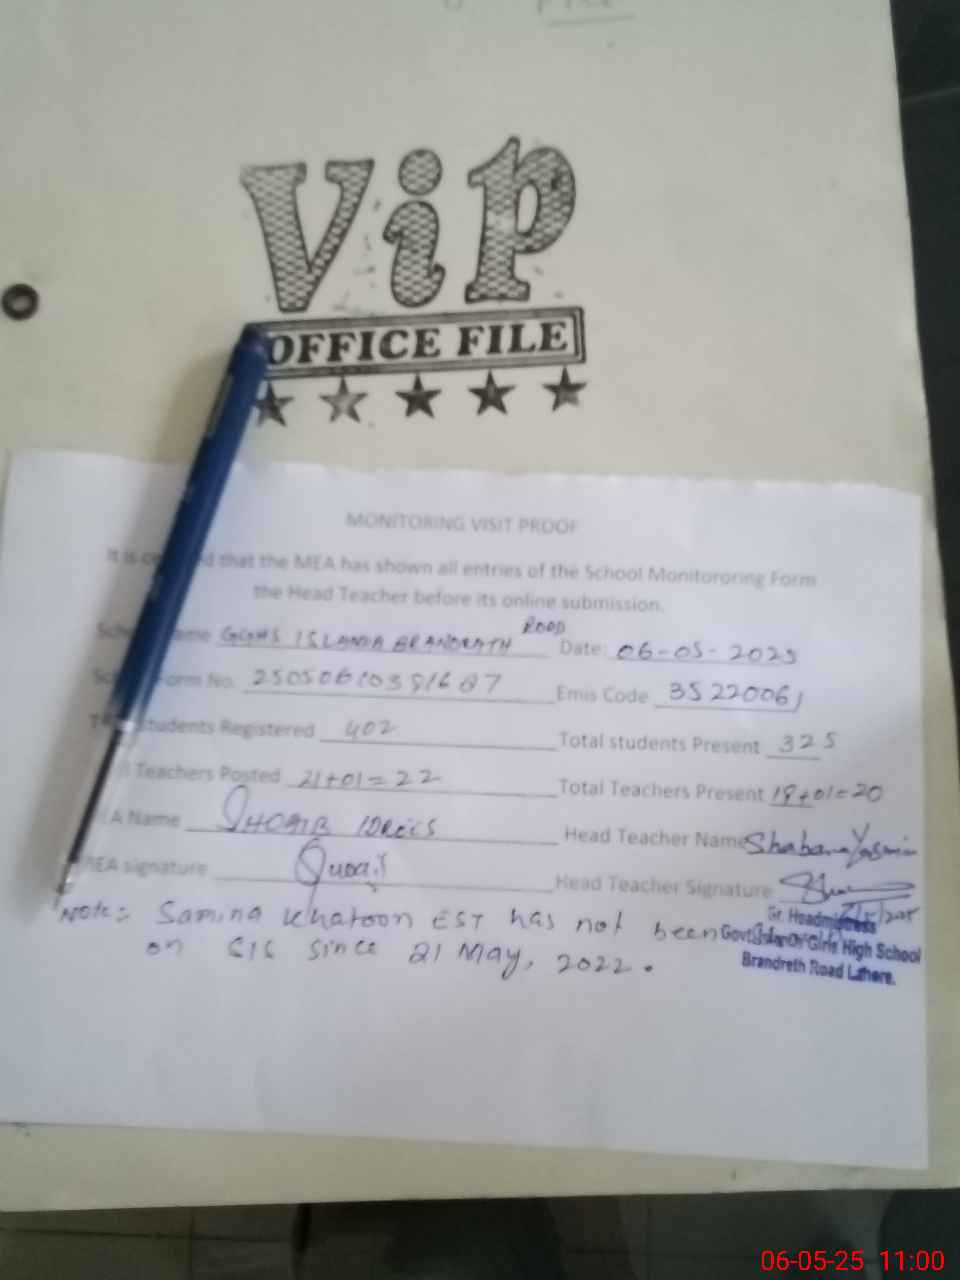 Vip
OFFICE FILE
MONITORING VISIT PROOF
It is that the MEA has shown all entries of the School Monitororing Form
the Head Teacher before its online submission.
GGHS ISLAMIA BRANDRATH ROOD Date: 06-05-2025
Form No. Emis Code 35220061
Students Registered 402 Total students Present 325
Teachers Posted 21+01=22 Total Teachers Present 19+01=20
A Name SHOAIB IDREES Head Teacher Name Shabana Yasmin
MEA signature Head Teacher Signature
Note:- Samina Khatoon EST has not been
on SIS since 21 May, 2022.
Sr. Headmistress
Govt. Girls High School
Brandreth Road Lahore.
06-05-25 11:00